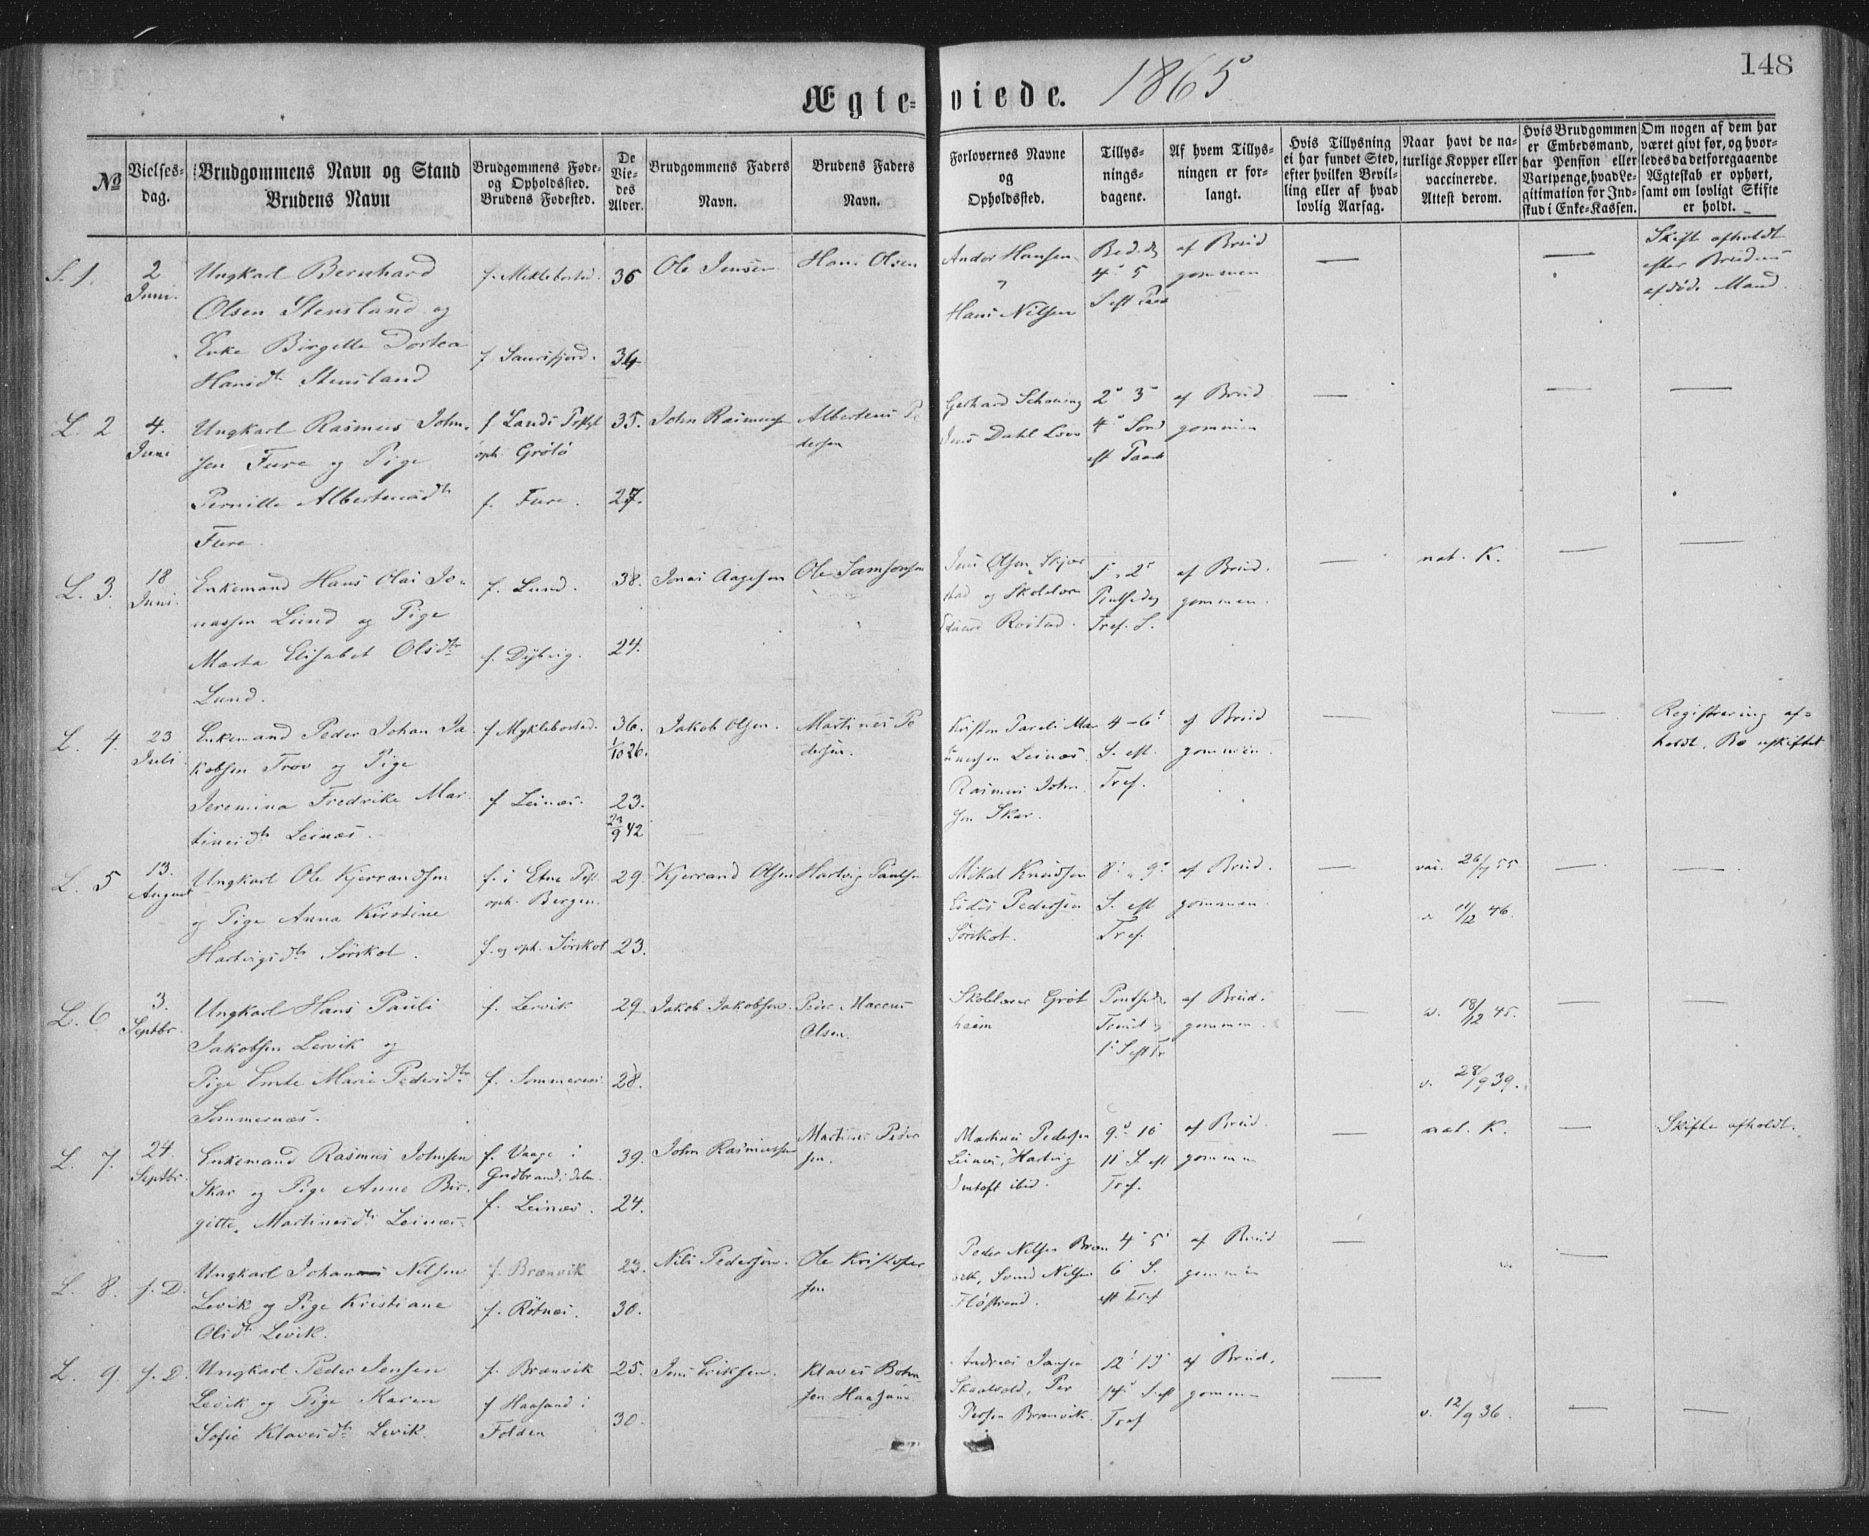 148
Ægte= viede. 1865
№
Vielses=
dag.
Brudgommens Navn og Stand
Brudens Navn
Brudgommens Føde=
og Opholdssted.
Brudens Fødested.
De
Vie=
des
Alder.
Brudgommens Faders
Navn.
Brudens Faders
Navn.
Forlovernes Navne
og
Opholdssted.
Tillys=
nings=
dagene.
Af hvem Tillys=
ningen er for=
langt.
Hvis Tillysning
ei har fundet Sted,
efter hvilken Bevil=
ling eller af hvad
lovlig Aarsag.
Naar havt de na=
turlige Kopper eller
vaccinerede.
Attest derom.
Hvis Brudgommen
er Embedsmand,
har Pension eller
Vartpenge, hvad Le=
gitimation for Ind=
skud i Enke=Kassen.
Om nogen af dem har
været givt før, og hvor=
ledes da det foregaaende
Ægteskab er ophørt,
samt om lovligt Skifte
er holdt.
S. 1.
2
Juni.
Ungkarl Bernhard
Olsen Stensland og
Enke Birgitte Dortea
Hansdtr Stensland
f. Mikkelbostad.
f Saursfjord.
36
34
Ole Jensen
Hans Olsen
Andor Hansen
Hans Nilsen
4° 5
S eft Paas
af Brud
gommen
Skift afholdt
efter Brudens
afdøde Mand.
L. 2
4.
Juni
Ungkarl Rasmus John=
sen Fure og Pige
Pernille Albertensdtr
Fure.
f Lands
oph. Grøtø
f. Fure.
35.
27.
John Rasmussen
Albertens Pe
dersen
Gerhard Schøning
Jens Dahl
2° 3°
4° Sønd
eft Paask
af Brud
gommen
L. 3.
18
Juni.
Enkemand Hans Olai Jo=
nassen Lund og Pige
Marta Elisabet Olsdtr
Lund.
f. Lund.
f. Dybvig.
38.
24.
Jonas Aagesen
Ole Samsonsen
Jens Olsen Skjer
stad og Skolelær
Edvard Rostad.
1°, 2°
Pintsedag
Tref. S.
af Brud.
gommen.
nat. K.
L. 4.
23
Juli.
Enkemand Peder Johan Ja
kobsen Trov og Pige
Jeremina Fredrike Mar
tinusdtr Leinæs.
f Myklebostad.
f Leinæs.
36.
1/10 26.
23.
23/9 42
Jakob Olsen.
Martinus Pe
dersen.
Kristen Pareli Mar
tinussen Leinæs.
Rasmus John
sen Skar.
4-6°
S. eft.
Tref.
af Brud
gommen.
Registrering af=
holdt. Bo uskiftet
L. 5
13.
August
Ungkarl Ole Kjerrandsen
og Pige Anna Kirstine
Hartvigsdtr Sørskot.
f. i Etne
oph. Bergen.
f. og oph. Sørskot
29.
23.
Kjerrand Olsen
Hartvig Paulsen
Mikal Knudsen
Edis Pedersen
Sørskot.
8°, 9°
S. eft
Tref.
af Brud.
gommen.
vac. 26/9 55
v. 11/12 46.
L. 6
3.
Septbr.
Ungkarl Hans Pauli
Jakobsen Leivik og
Pige Emte Marie Pedersdtr
Sommernæs.
f. Leivik
f. Sommernæs
29.
28.
Jakob Jakobsen.
Peder Marcus
Olsen.
Skolelærer Grøt
heim
Pintsedag
1° S eft Tr
af Brud.
gommen.
v. 18/12 45.
v. 28/9 39.
L. 7.
24.
Septbr.
Enkemand Rasmus Johnsen
Skar og Pige Anne Bir=
gitte Martinusdtr Leinæs.
f. Vaage i
Gudbrandsdalen
f. Leinæs.
39.
24.
John Rasmussen
Martinus Peder
sen.
Martinus Pedersen
Leinæs, Hartvig
Entoft ibid.
9° 10
11 S. eft
Tref.
af Brud.
gommen
nat. K.
Skifte afholdt.
L. 8.
s. D.
Ungkarl Johannes Nilsen
Levik og Pige Kristiane
Olsdtr Levik.
f. Brænvik
f. Røtnæs.
23.
30.
Nils Pedersen.
Ole Kristofer
sen
Peder Nilsen Bræn
vik, Svend Nilsen
Fløstrand.
4° 5°
6 S.
eft Tref
af Brud
gommen
L. 9.
s. D.
Ungkarl Peder Jensen
Levik og Pige Karen
Sofie Klavesdtr Levik.
f. Brænvik
f Haasand i
Folden
25.
30.
Jens Eriksen.
Klaves Bohn
sen Haasand
Andreas Jansen
Skaalvold, Per
Persen Brænvik.
12° 13
14° S. eft
Tref
af Brud.
gommen
v. 12/9 36.